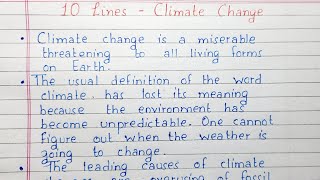 10 Lines - Climate Change
• Climate change is a miserable
threatening to all living forms
on Earth.
• The usual definition of the word
climate has lost its meaning
because the environment has
become unpredictable. One cannot
figure out when the weather is
going to change.
• The leading causes of climate
change are overusing of fossil